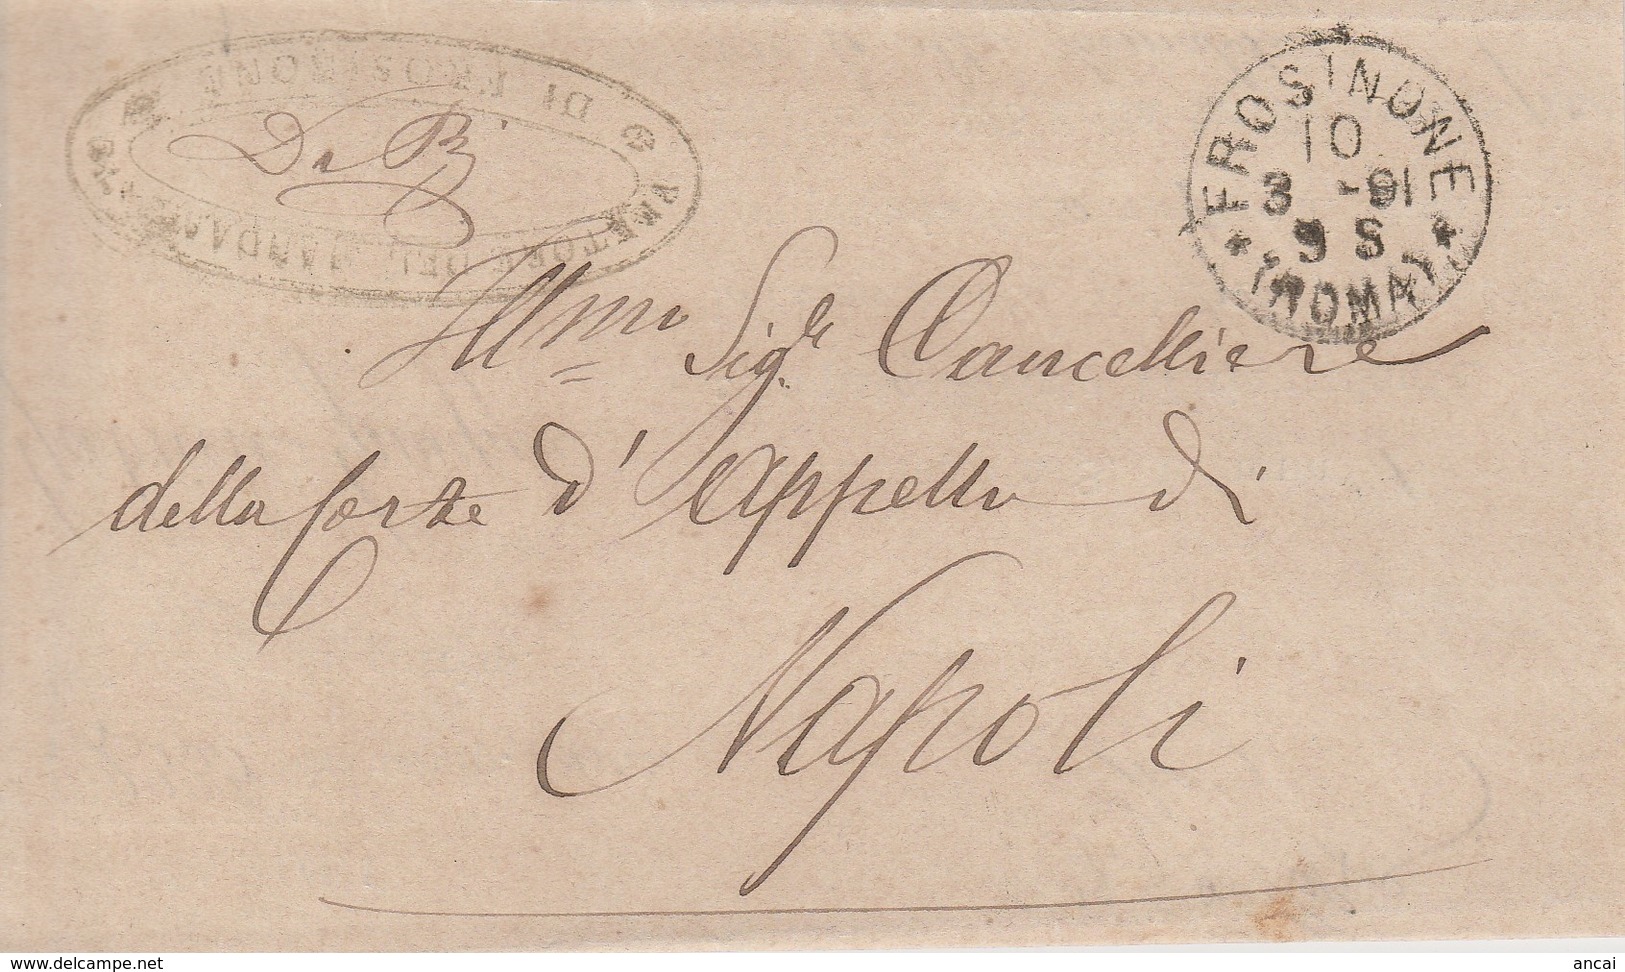 PRETORE DEL MANDAM
DI FROSINONE
FROSINONE
10
3 -91
9 S
(ROMA)
Illmo Sigr Cancelliere
della Corte d'Appello di
Napoli
www.delcampe.net
ancai